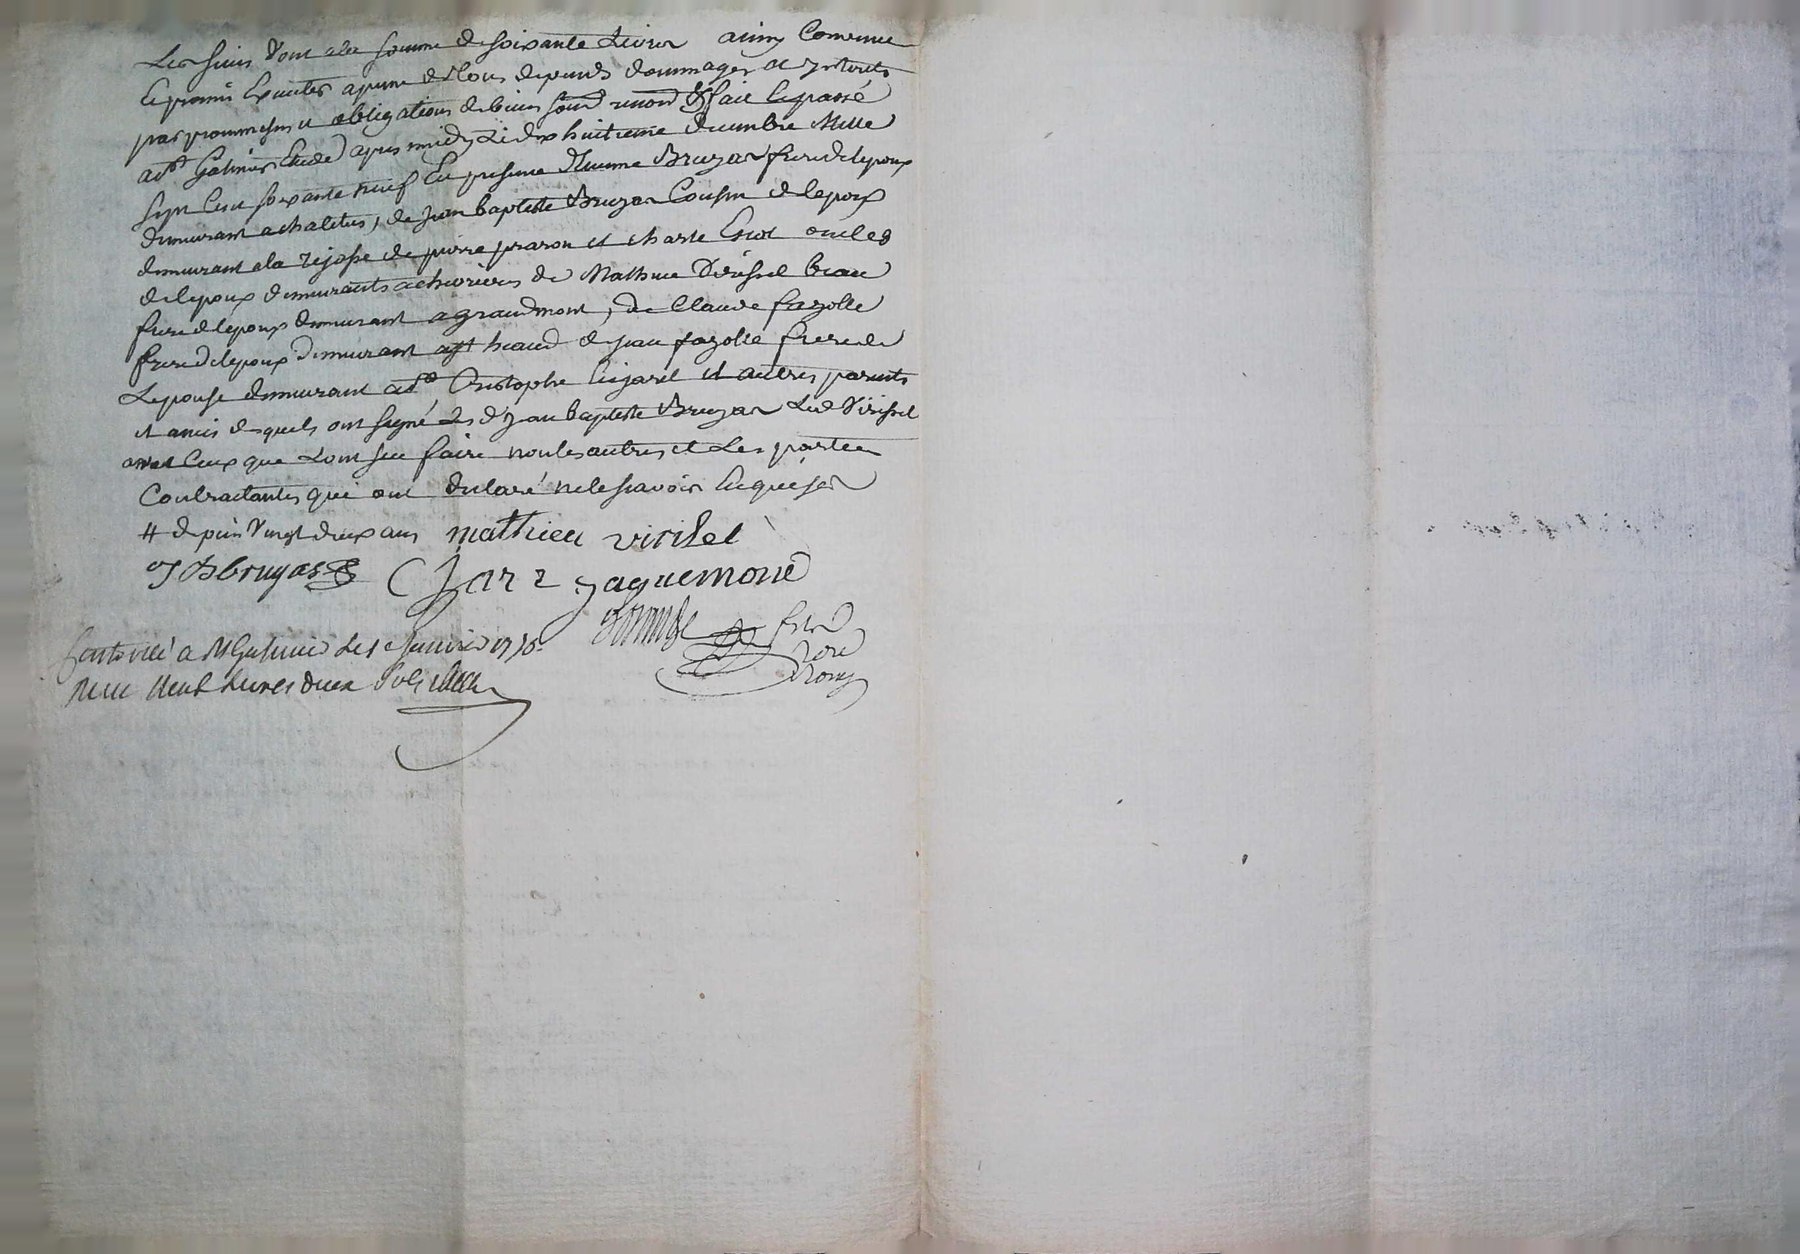 Les siens vont ala somme de soixante Livres ainsy Convenu
Et promis Executer a peine de tous depends dommages et
par promesses et obligations de biens soud renon fait Et passé
ad.t Galmier Etude apres midy Le dix huitieme decembre Mille
sept Cent soixante neuf En presence Bruyas frere de lepoux
demeurant a chatelus, de Jean baptiste Bruyas Cousin de lepoux
demeurant ala de pierre praron et oncles
de lepoux demeurants a chevrieres de Mathieu Virissel beau
frere de lepoux demeurant a grandmont, de Claude fazolle
frere de lepoux demeurant de Jean fazolle frere de
Lepouse demeurant ad.t Cristophe et autres parents
et amis desquels ont signé Les d. Jean baptiste Bruyas Led Virissel
avec Ceux que Lont sceu faire non les autres et Les parties
Contractantes qui ont declaré ne le scavoir Enquises
# depuis vingt deux ans mathieu virisel
J B bruyas jaquemond
Controllé a St Galmier Le 1 Janvier 1770
Reçu neuf livres deux sols